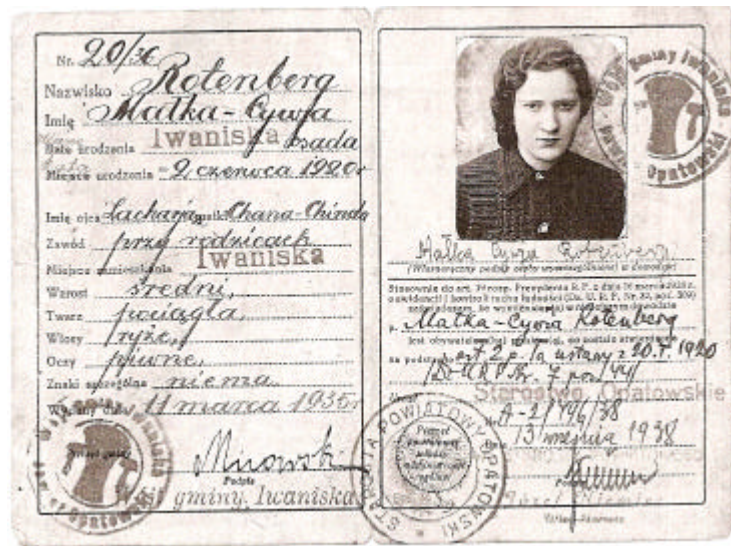 Nr. 20/36
Nazwisko Rotenberg
Imię Małka-Cywja
Data urodzenia Iwaniska osada
Miejsce urodzenia 2 czerwca 1920 r
Imię ojca Zacharja matki Chana-Chinda
Zawód przy rodzicach
Miejsce zamieszkania Iwaniska
Wzrost średni,
Twarz pociągła,
Włosy ryże,
Oczy piwne,
Znaki szczególne niema
Wydany dnia 11 marca 1936 r
Podpis
Wójt gminy, Iwaniska
Wójt Gminy Iwaniska
powiat Opatowski
Wójt Gminy Iwaniska
powiat Opatowski
Małka Cywja Rotenberg
(Własnoręczny podpis osoby wymienionej w dowodzie)
Stosownie do art. rozp. Prezydenta R. P. z dnia 16 marca 1928 r.
o ewidencji i kontroli ruchu ludności (Dz. U. R. P. Nr. 32, poz. 309)
zaświadczam, że
p. Małka-Cywja Rotenberg
jest obywatelem co zostało stwierdzone
na podstawie art 2 p. 1a ustawy z 20.I.1920
Dz.U.R.P. Nr. 7 poz. 44
Starostwo Opatowskie
A-2/146/38
dnia 13 1938
STAROSTA POWIATOWY OPATOWSKI